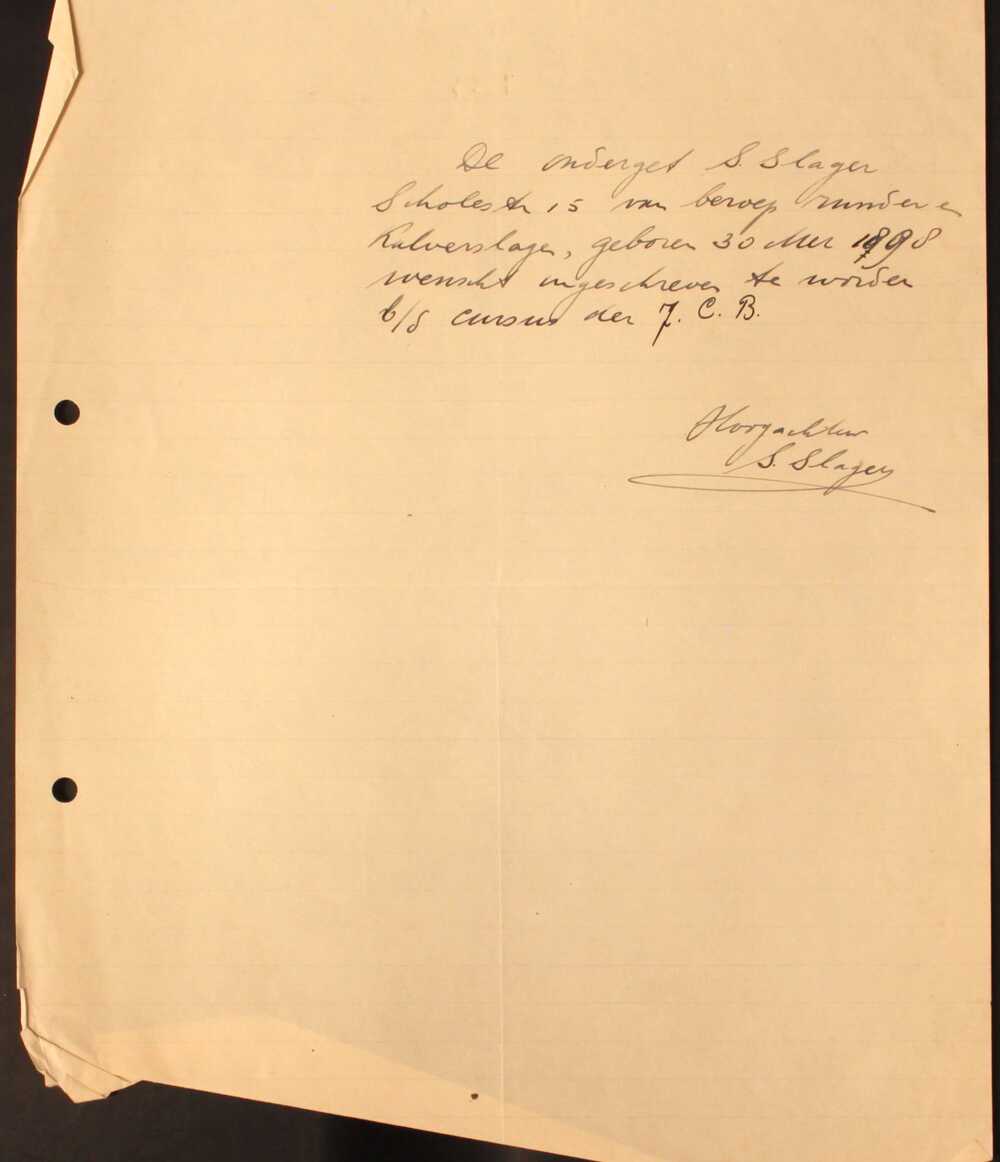 De onderget S Slager
Scholestr 15 van beroep runder en
Kalverslager, geboren 30 Mei 1898
wenscht ingeschreven te worden
b/d cursus der J. C. B.
Hoogachten
S. Slager